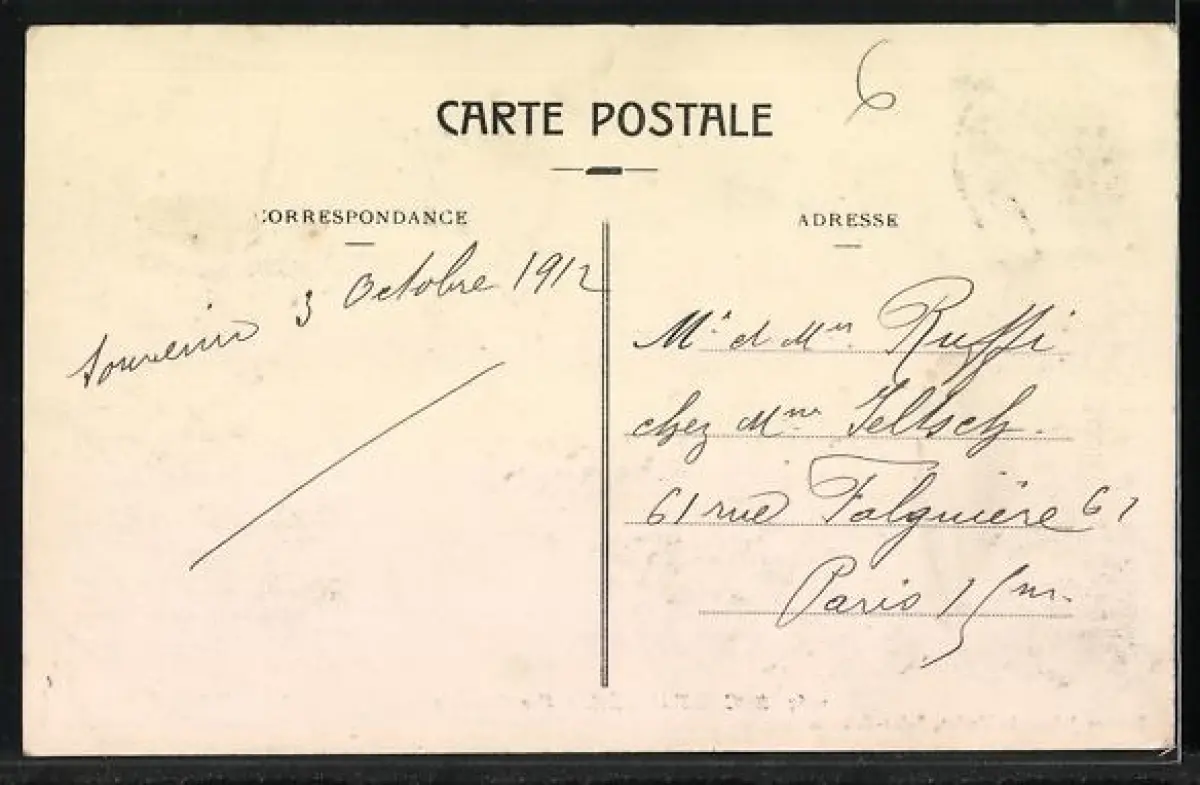 6
CARTE POSTALE
CORRESPONDANCE
ADRESSE
Souvenir 3 Octobre 1912
Mr et Mme Ruffi
chez Mme Jeltsch.
61 rue Falguière 61
Paris 15me